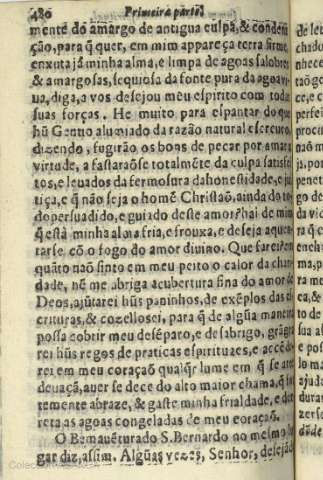 480 Primeira parte
mente do amargo de antigua culpa, & condem
ção, para q̃ quer, em mim appareça terra firme,
enxuta já minha alma, e limpa de agoas salobres
& amargosas, sequiosa da fonte pura da agoa vi
ua, diga, a vos desejou meu espirito com todas
suas forças. He muito para espantar do que
hũ Gentio alumiado da razão natural escreueo,
dizendo, fugirão os bons de pecar por amar a
virtude, a fastarãose totalmẽte da culpa satisfei
tos, e leuados da fermosura da honestidade, e jus
tiça, e q̃ não seja o homẽ Christaõ, ainda do to
do persuadido, e guiado deste amor? hai de mim
q̃ està minha alma fria, e frouxa, e deseja aquen
tarse cõ o fogo do amor diuino. Que farei? em
quãto naõ sinto em meu peito o calor da chari
dade, nẽ me abriga a cubertura fina do amor de
Deos, ajũtarei hũs paninhos, de exẽplos das es
crituras, & cõzellosei, para q̃ de algũa maneira
possa cobrir meu desẽparo, e desabrigo, grãgea
rei hũs regos de praticas espirituaes, e accẽde
rei em meu coraçaõ qualq̃r lume em q̃ se arte
deuaçã, auer se dece do alto maior chama, q̃ for
temente abraze, & gaste minha frialdade, e der
reta as agoas congeladas de meu coraçaõ.
O Bemauẽturado S. Bernardo no mesmo lu
gar diz, assim. Algũas vezes, Senhor, desejãdo